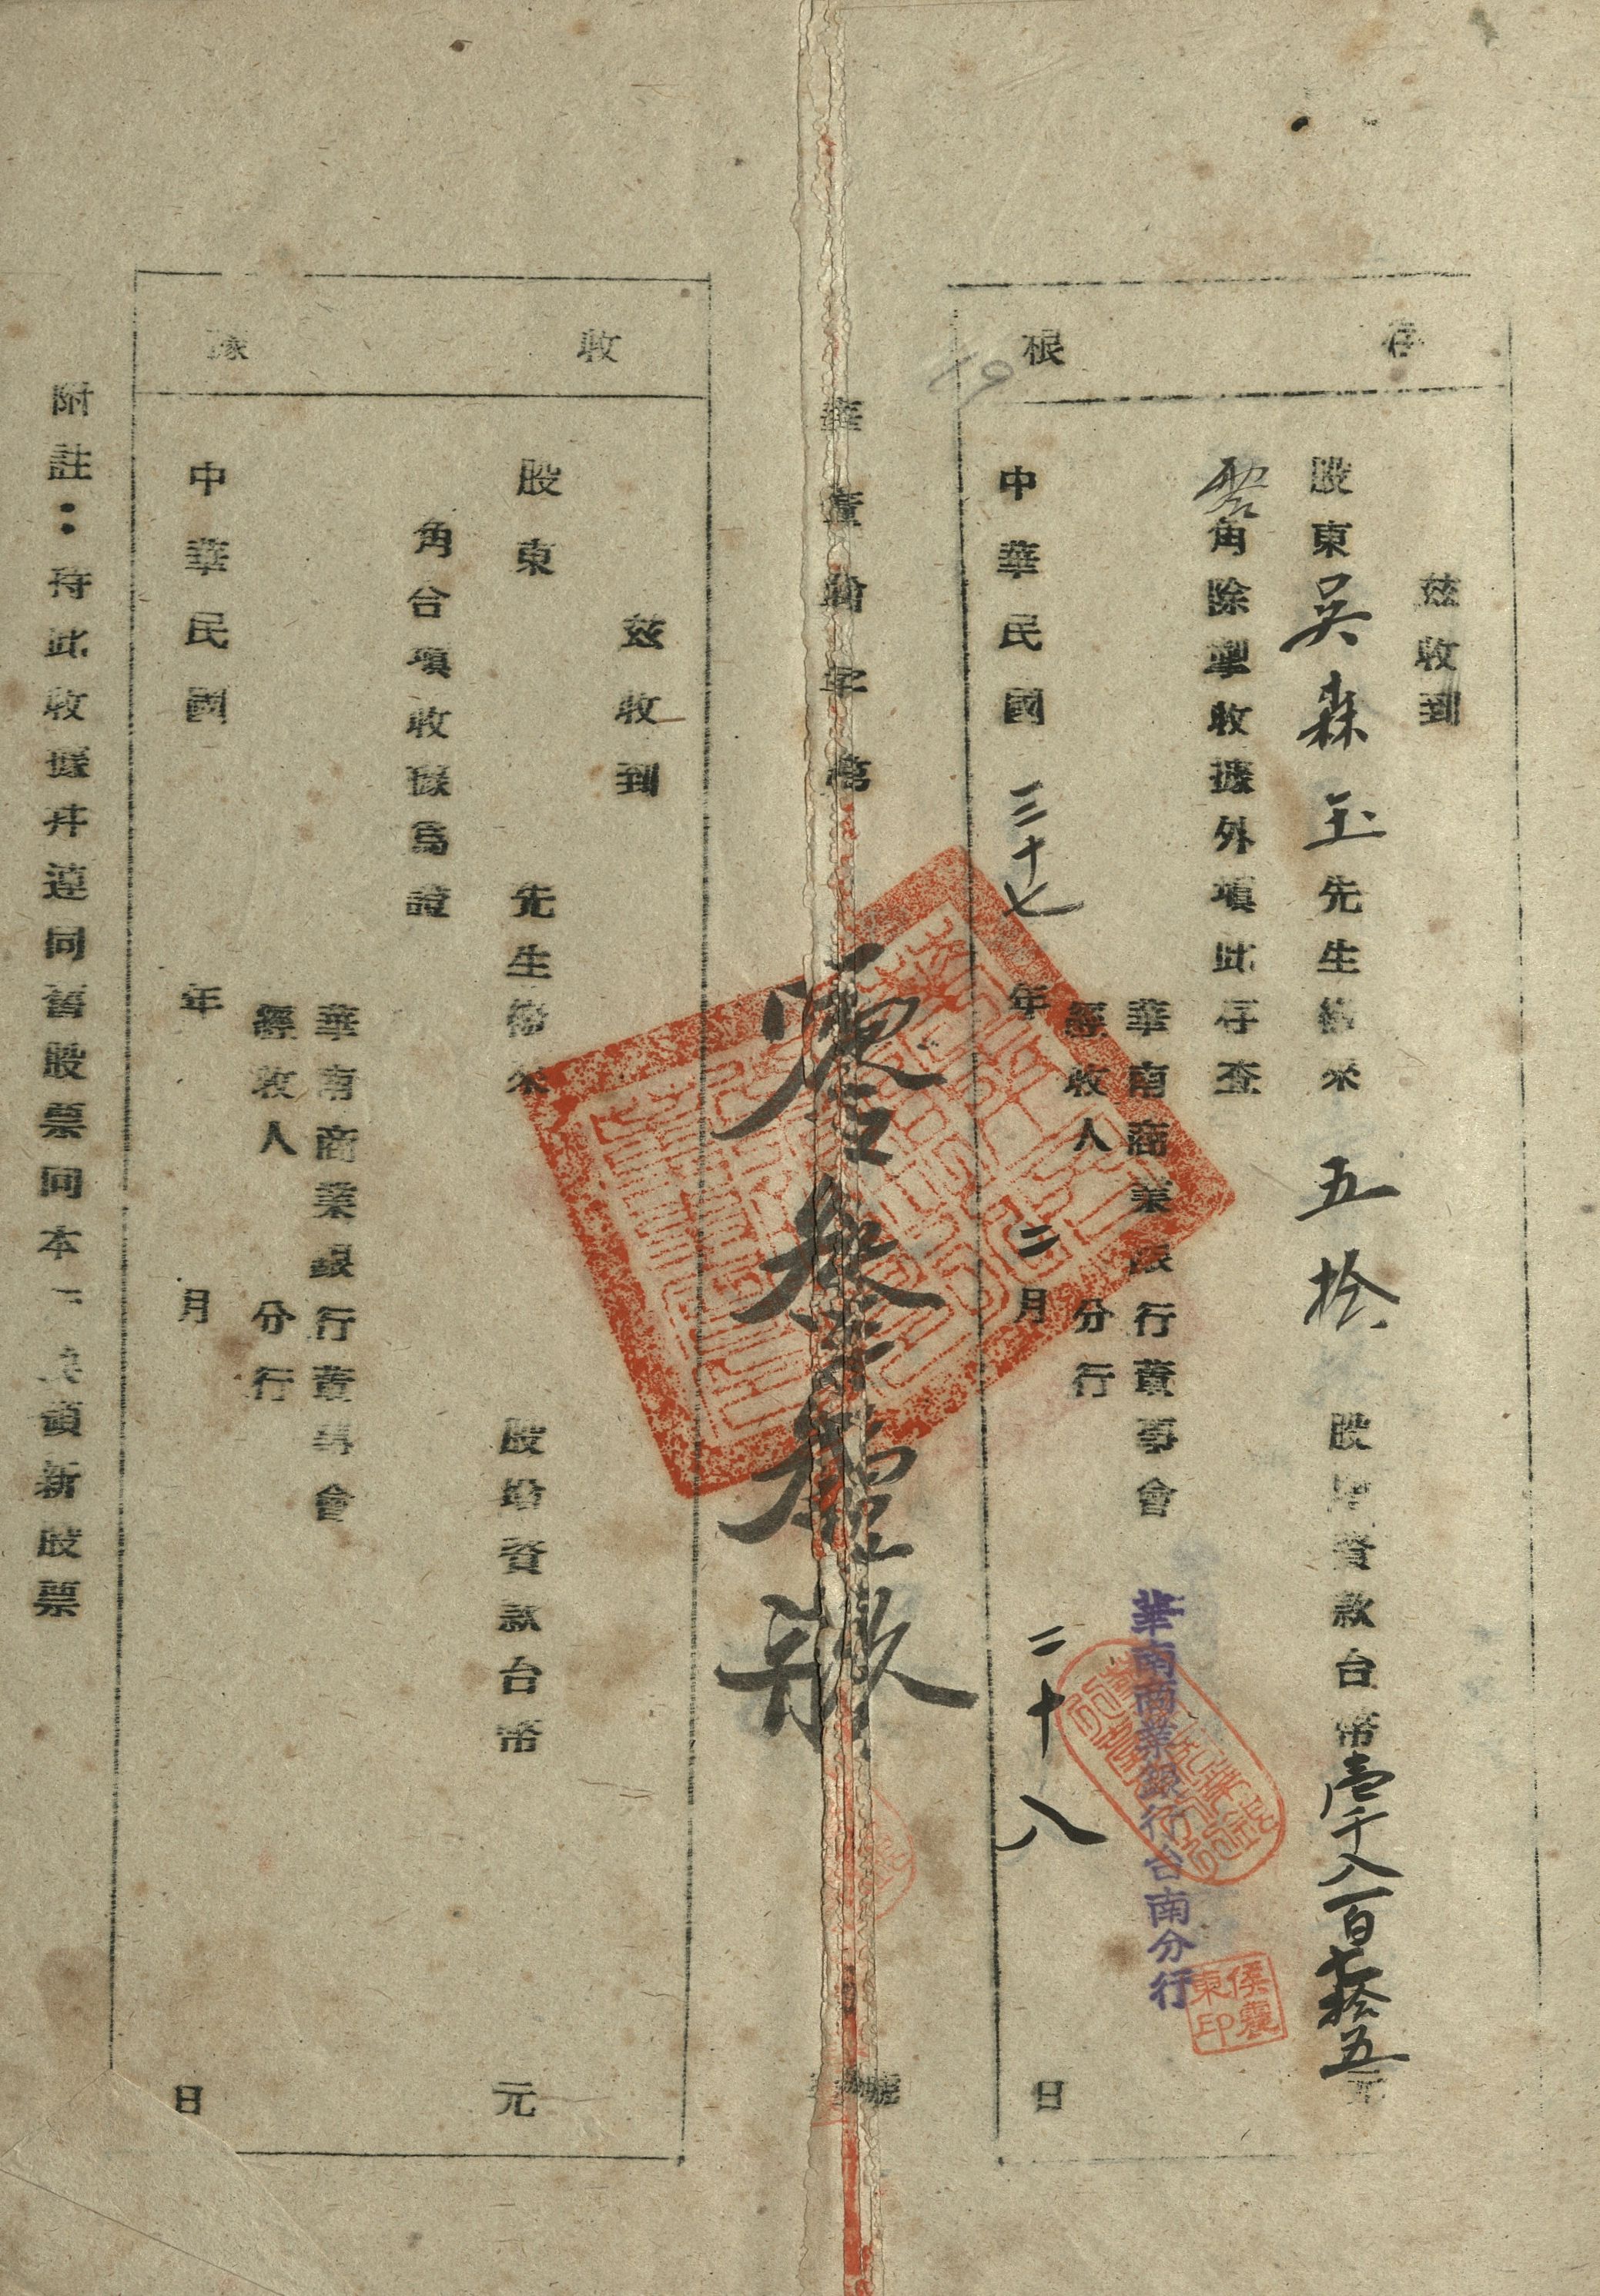 存根
茲收到
股東吳森玉先生繳來五拾股增資款台幣壹千八百七拾五元
零角除掣收據外項此存查
華南商業銀行董事會
華南商業銀行台南分行
經收人 分行
侯襄東印
中華民國三十七年二月二十八日
19
華董 字第零叁 號
收據
茲收到
股東 先生繳來 股增資款台幣 元
角合項收據為證
華南商業銀行董事會
經收人 分行
中華民國 年 月 日
附註：持此收據并連同舊股票同本 換領新股票